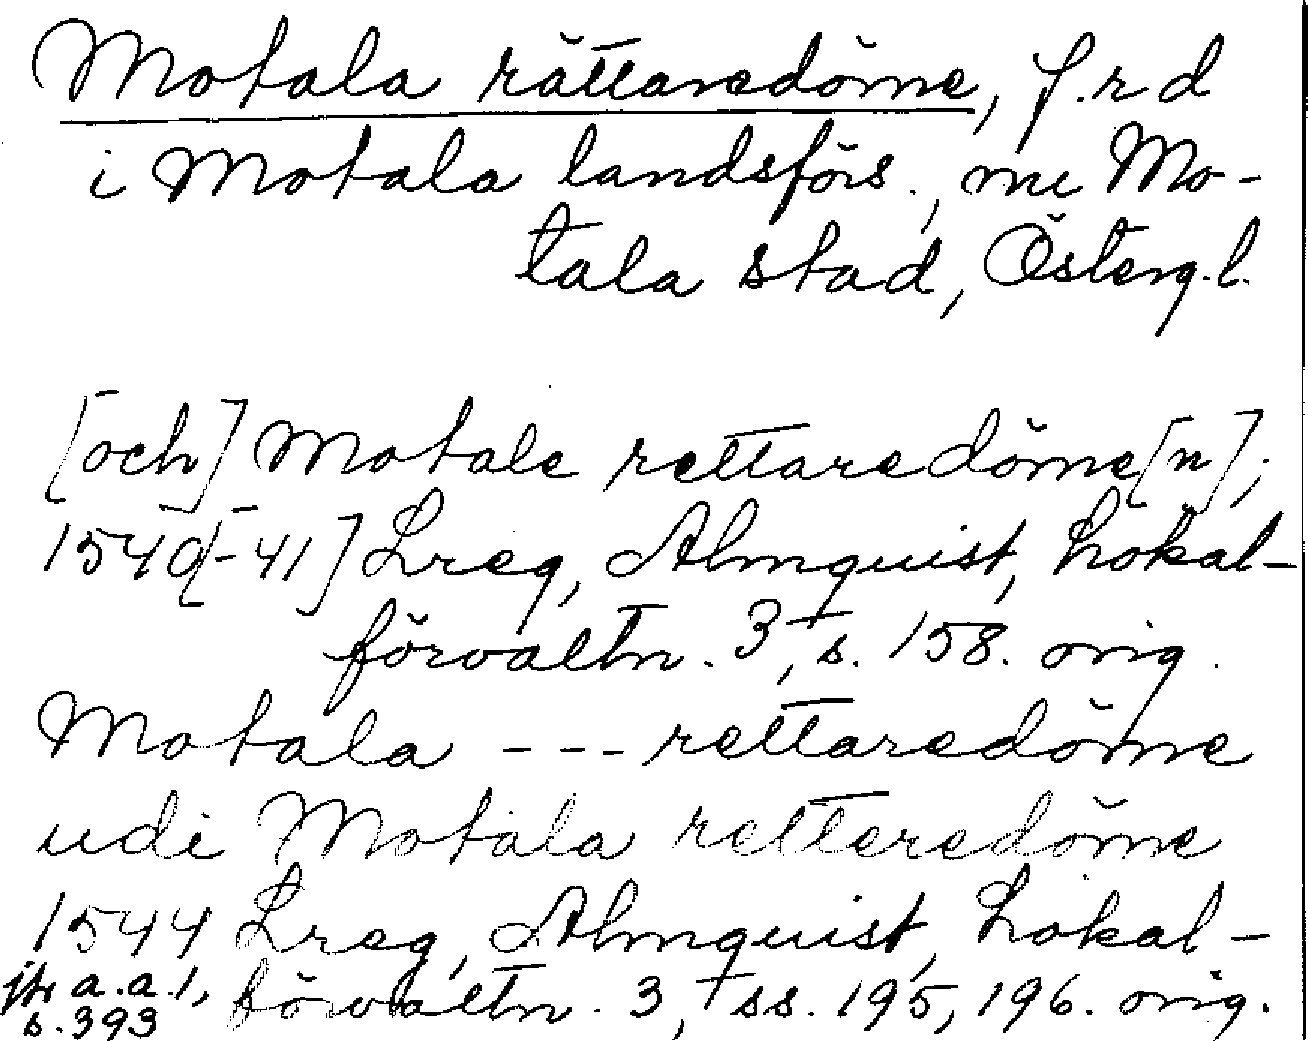 Motala rättaredöme, f.r d
i Motala landsförs., nu Mo-
tala stad, Österg.l.
[och] Motale rettaredöme[n];
1540[-41] Lreg, Almquist, Lokal-
förvaltn. 3, s. 158. orig.
Motala --- rettaredöme
udi Motala retteredöme
1544 Lreg, Almquist, Lokal-
jfr a.a.1, förvaltn. 3, ss. 195, 196. orig.
s.393